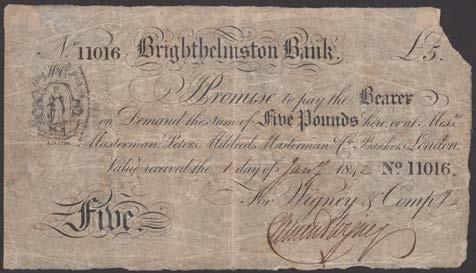 No. 11016 Brighthelmston Bank. £5.
W&C
I Promise to pay the Bearer
on Demand the Sum of Five Pounds here, or at Messrs.
Masterman, Peters, Mildred, Masterman & Co. Bankers, London.
A.D. 1796
Value received the 1 day of Jany 1842 No 11016.
For Wigney & Compy.
Five.